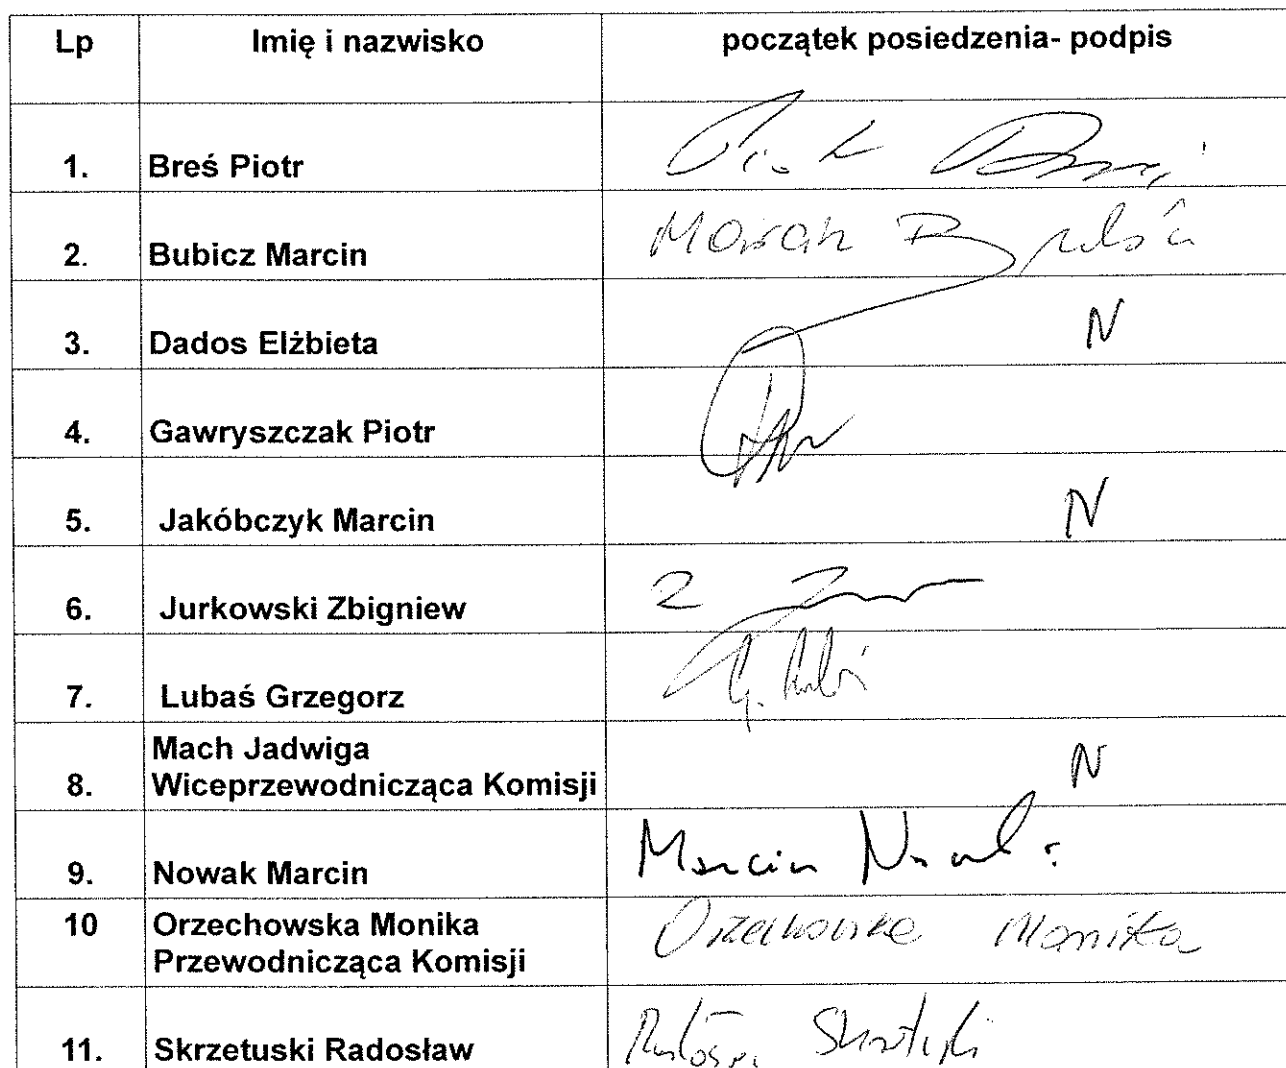 Lp Imię i nazwisko początek posiedzenia- podpis
1. Breś Piotr Piotr Breś
2. Bubicz Marcin Marcin
3. Dados Elżbieta N
4. Gawryszczak Piotr
5. Jakóbczyk Marcin N
6. Jurkowski Zbigniew Z
7. Lubaś Grzegorz G. Lubaś
Mach Jadwiga
8. Wiceprzewodnicząca Komisji N
9. Nowak Marcin Marcin Nowak
10 Orzechowska Monika Orzechowska Monika
Przewodnicząca Komisji
11. Skrzetuski Radosław Radosław Skrzetuski